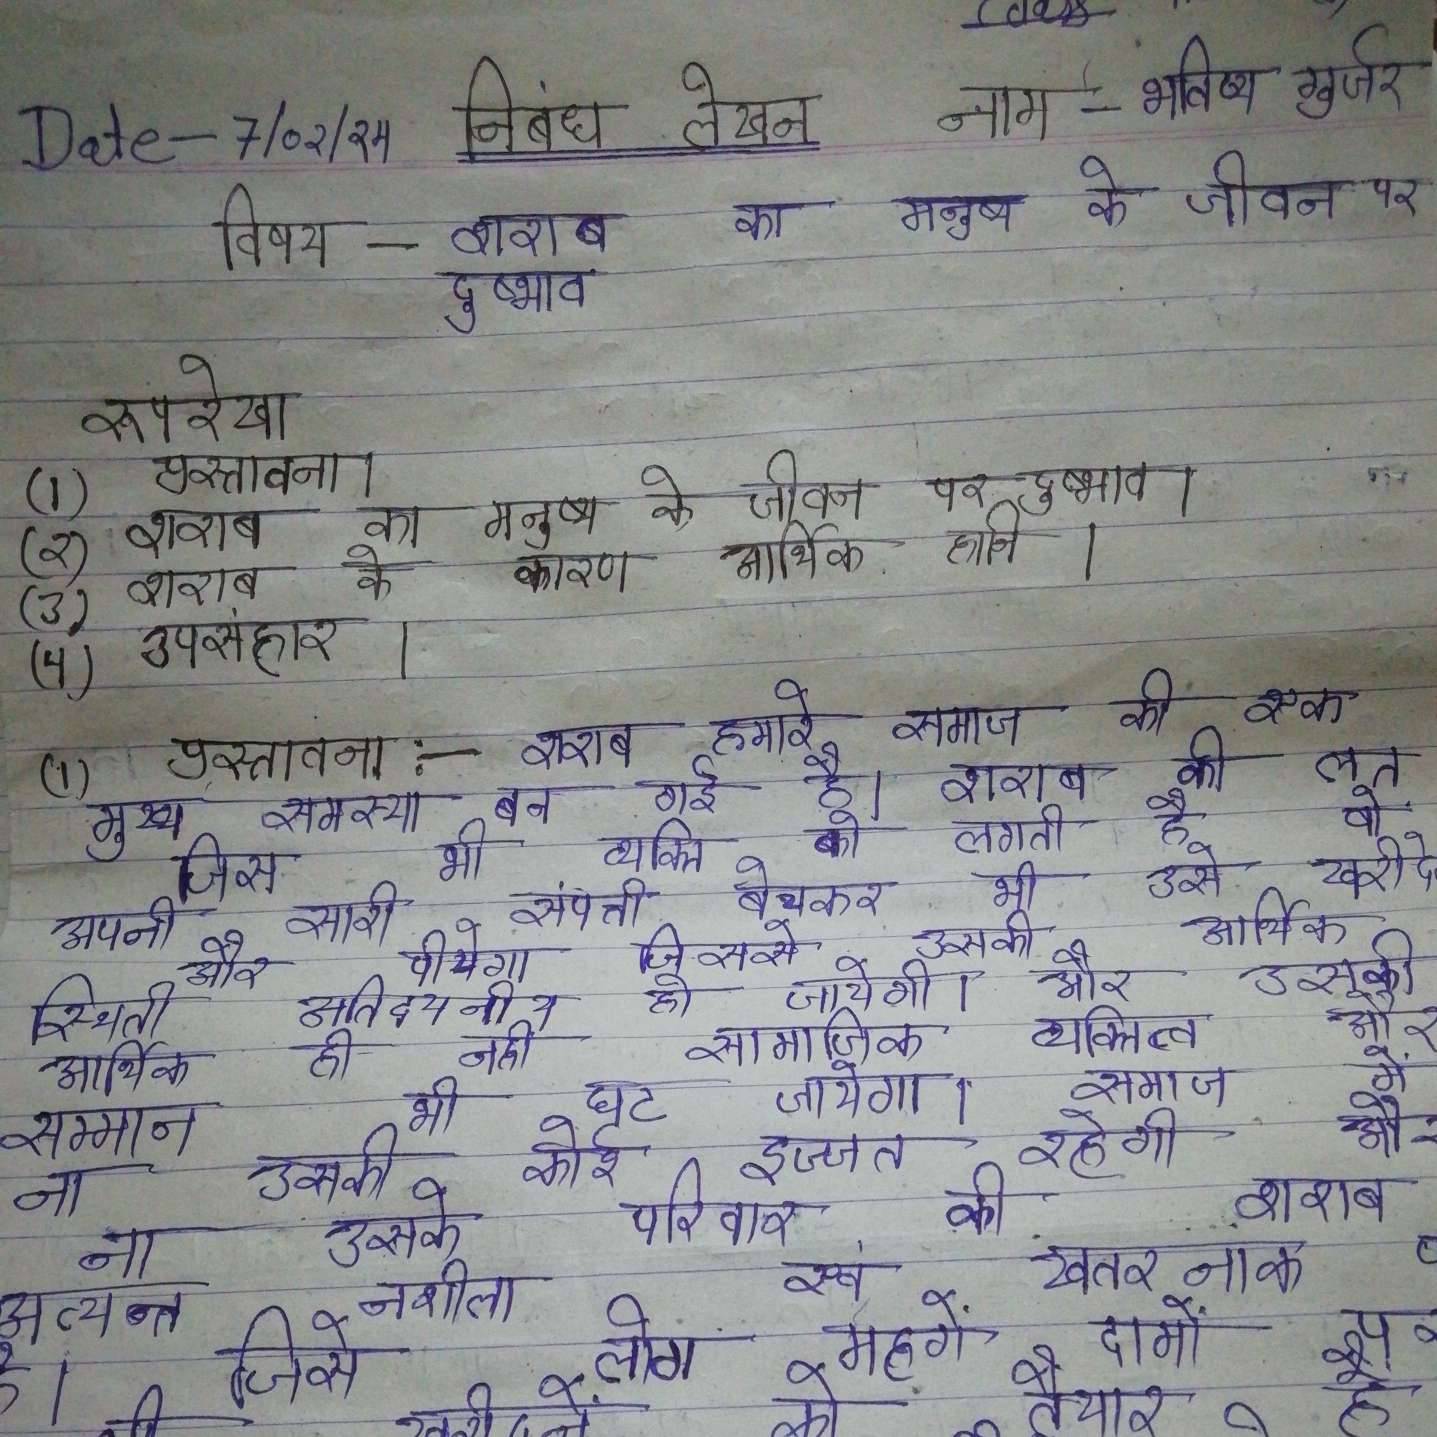 Class
Date - 7/02/24 निबंध लेखन नाम - भविष्य गुर्जर
विषय - शराब का मनुष्य के जीवन पर
दुष्भाव
रूपरेखा
(1) प्रस्तावना।
(2) शराब का मनुष्य के जीवन पर दुष्भाव।
(3) शराब के कारण आर्थिक हानि।
(4) उपसंहार।
(1) प्रस्तावना :- शराब हमारे समाज की एक
मुख्य समस्या बन गई है। शराब की लत
जिस भी व्यक्ति को लगती है वो
अपनी सारी संपत्ती बेचकर भी उसे खरीदे
और पीयेगा जिससे उसकी आर्थिक
स्थिती अतिदयनीय हो जायेगी। और उसकी
आर्थिक ही नही सामाजिक व्यक्तित्व और
सम्मान भी घट जायेगा। समाज में
ना उसकी कोई इज्जत रहेगी और
ना उसके परिवार की शराब
अत्यन्त नशीला एवं खतरनाक
है। जिसे लोग महगें दामों पर
भी खरीदनें को तैयार है